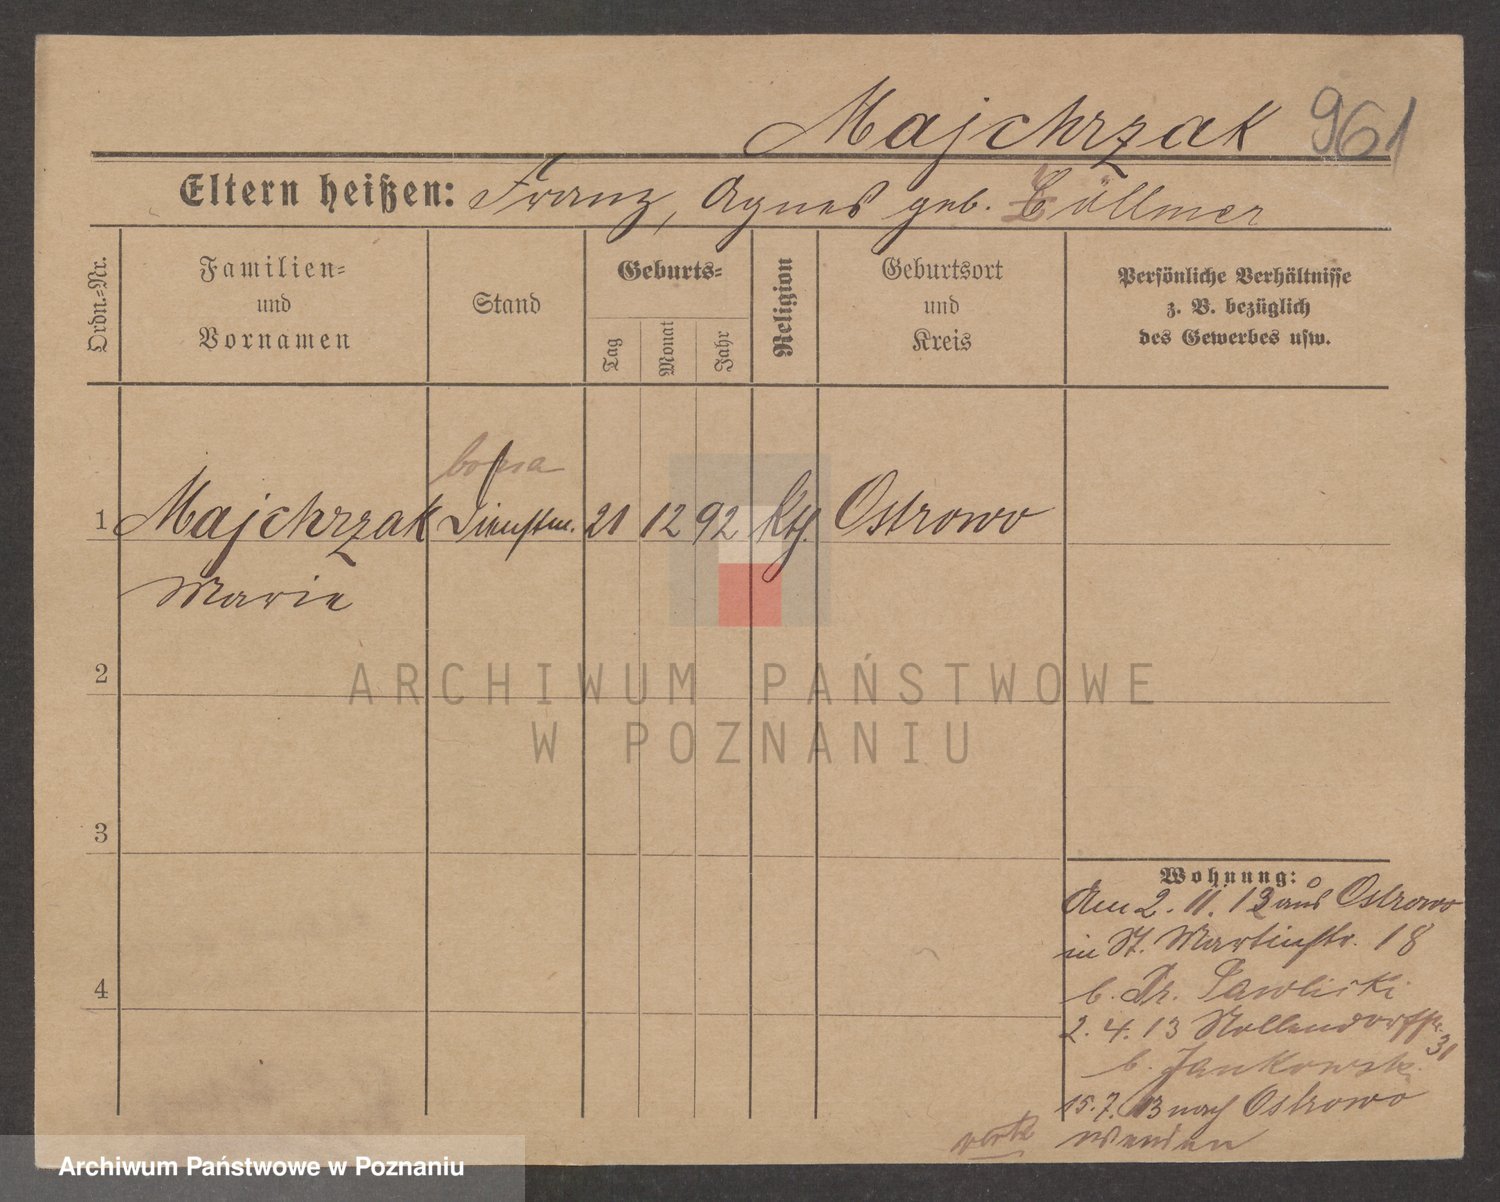 Majchrzak 961
Eltern heißen: Franz, Agnes geb. Cöllmer
Ordn.-Nr.
Familien-
und
Vornamen
Stand
Geburts-
Tag
Monat
Jahr
Religion
Geburtsort
und
Kreis
Persönliche Verhältnisse
z. B. bezüglich
des Gewerbes usw.
1 Majchrzak Dienstm. 21 12 92 Kth. Ostrowo
Marie
2
3
4
Wohnung:
Am 2. 11. 12 aus Ostrowo
in St. Martinstr. 18
b. Dr. Pawlicki
2. 4. 13 Nollendorfstr. 31
b. Jankowski
15. 7. 13 nach Ostrowo
wenden
ARCHIWUM PAŃSTWOWE
W POZNANIU
Archiwum Państwowe w Poznaniu